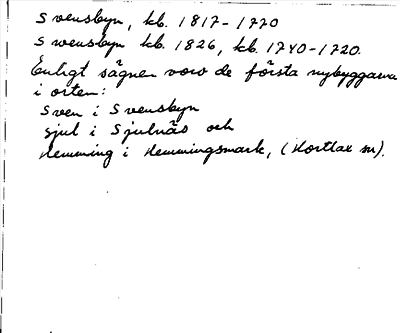 Svensbyn, kb. 1817-1770
Svensbyn kb. 1826, kb. 1740-1720.
Enligt sägnen voro de första nybyggarna
i orten:
Sven i Svensbyn
Sjul i Sjulnäs och
Hemming i Hemmingsmark, (Hortlax sn).